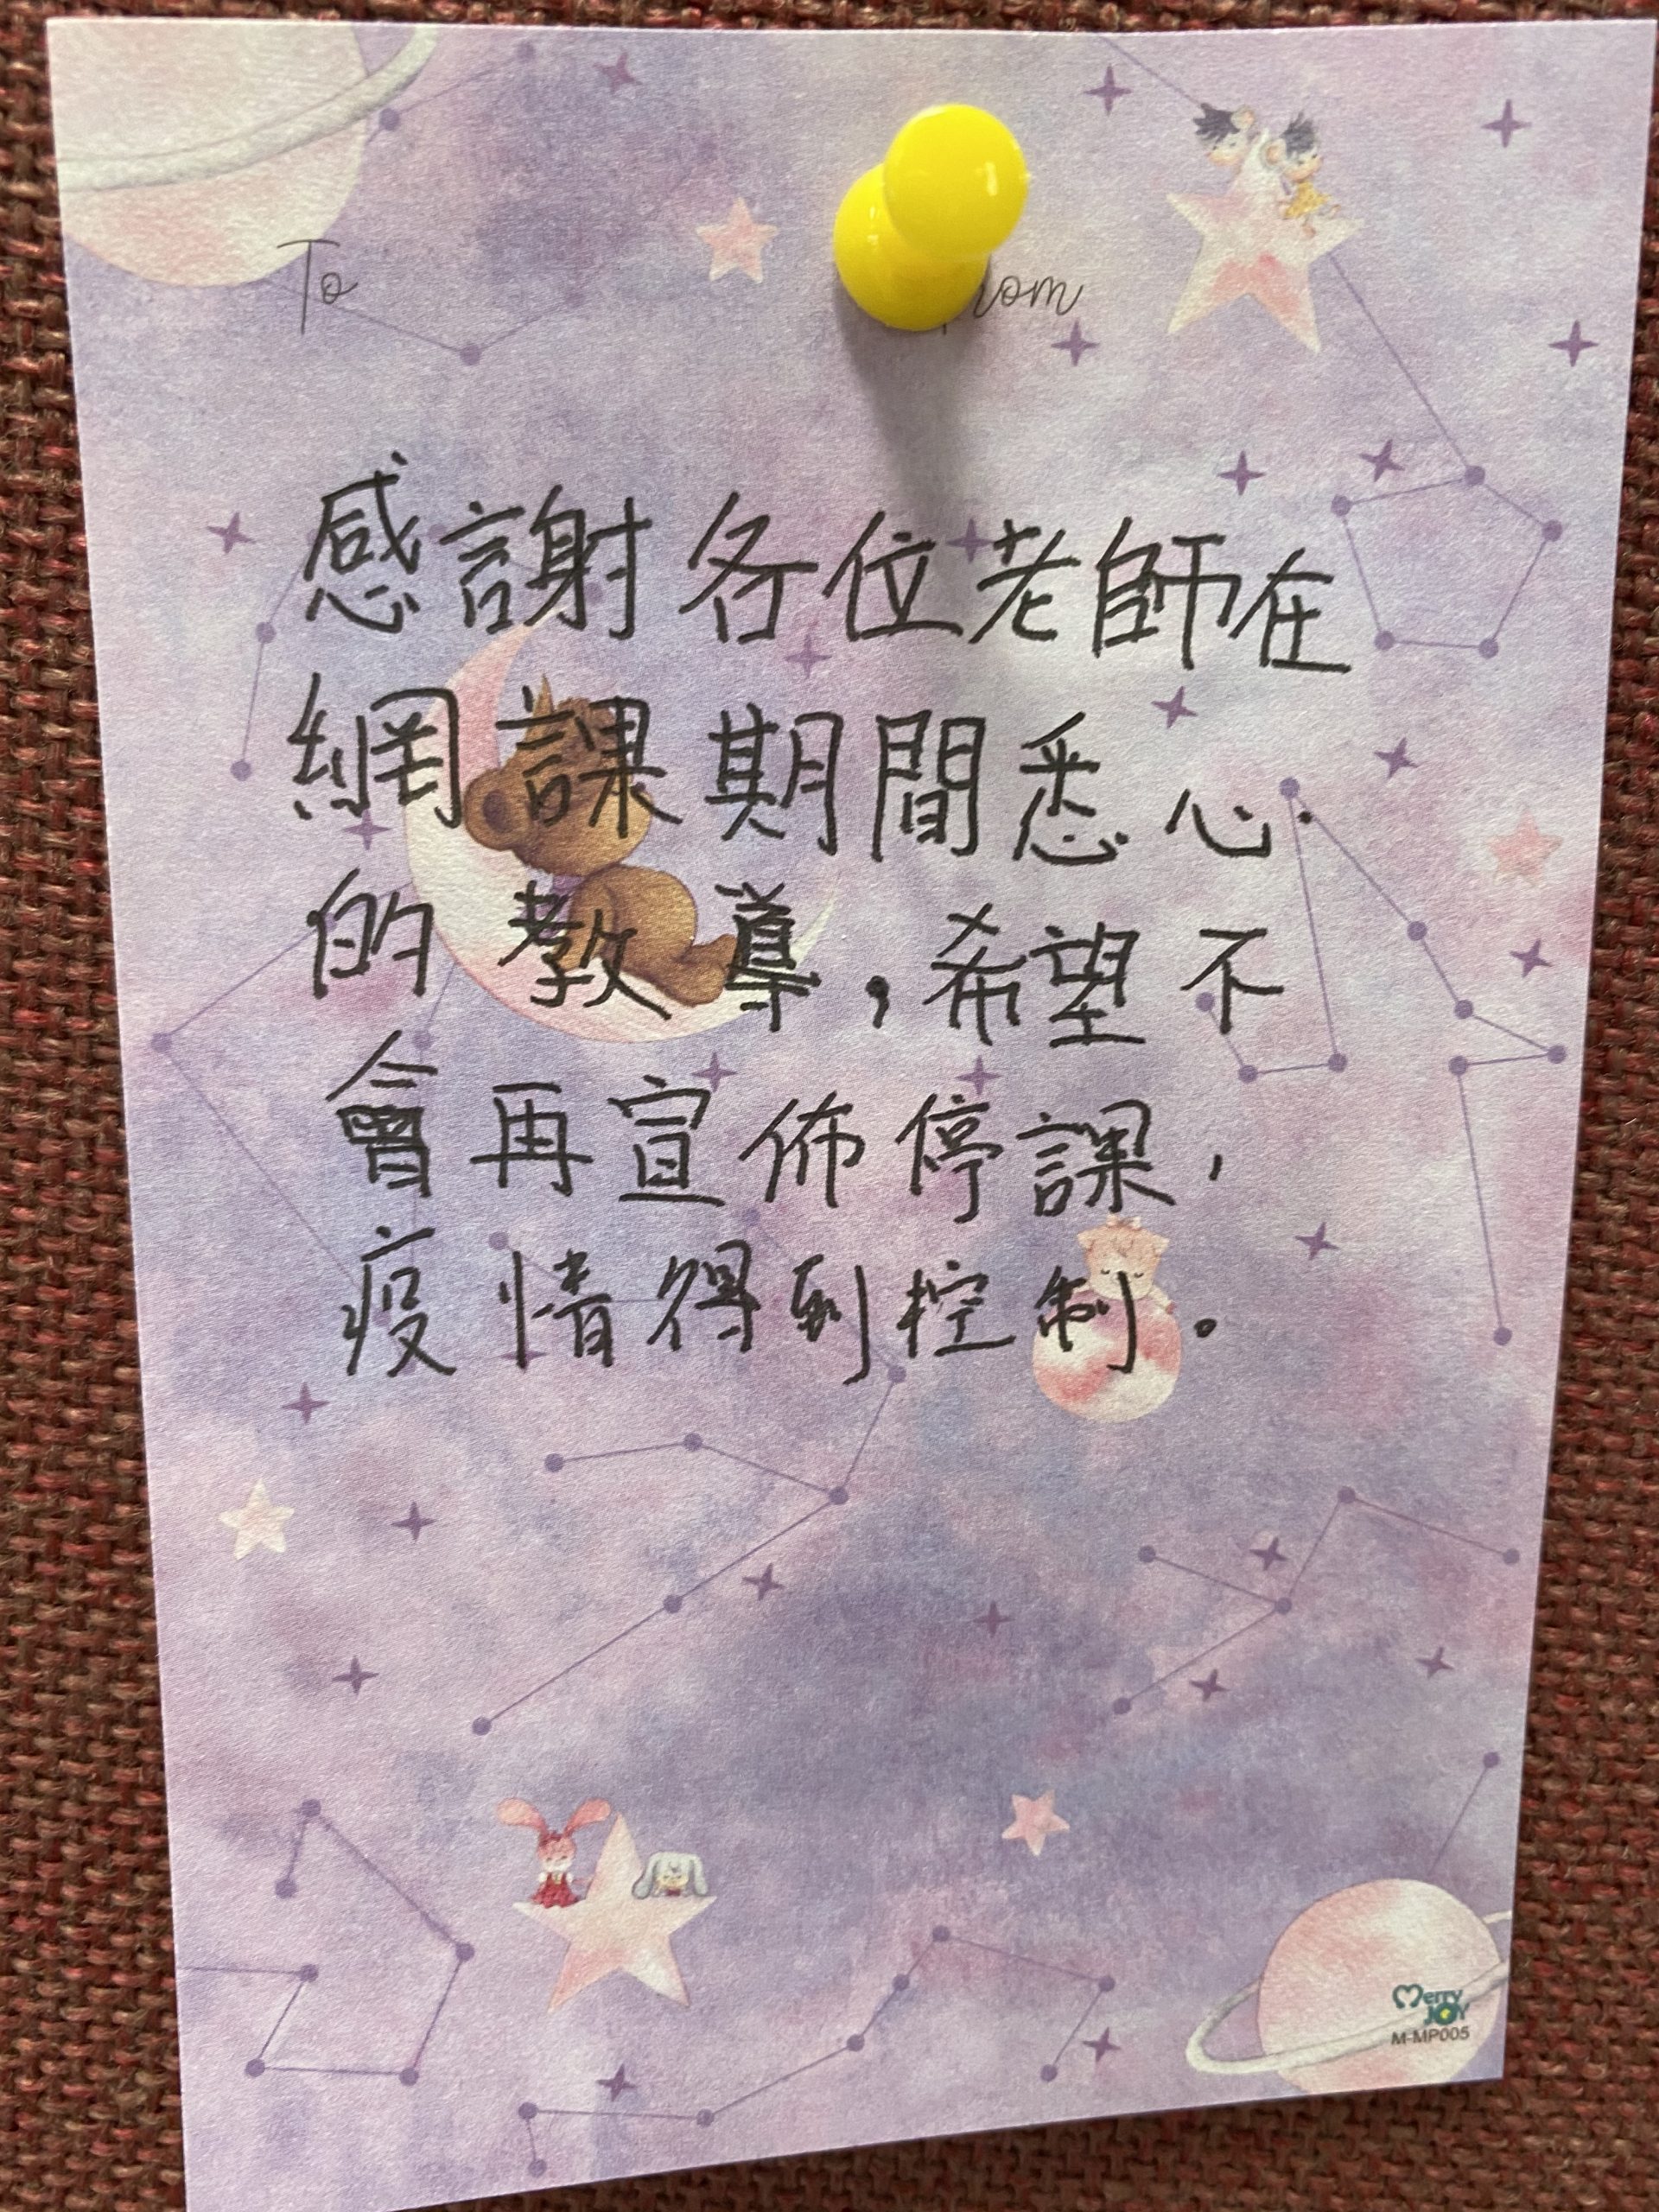 To
感謝各位老師在
網課期間悉心
的教導，希望不
會再宣佈停課，
疫情得到控制。
Merry
JOY
M-MP005